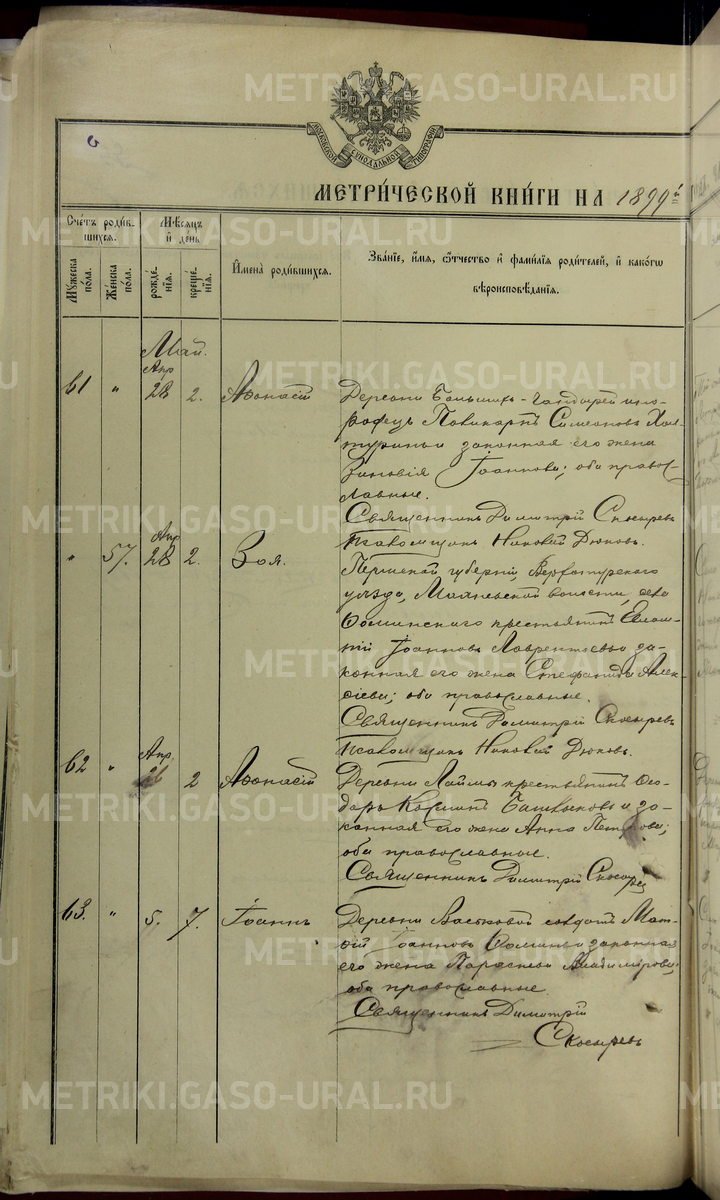 METRIKI.GASO-URAL.RU
МОСКОВСКОЙ СѴНОДАЛЬНОЙ ТИПОГРАФІИ
МЕТРИ́ЧЕСКОЙ КНИ́ГИ НА 1899 г.
Сче́тъ роди́вшихсѧ.
Мꙋ́жеска по́ла.
Же́нска по́ла.
Мѣ́сѧцъ и҆ де́нь
рожде́нїѧ.
креще́нїѧ.
И҆мена̀ роди́вшихсѧ.
Зва́нїе, и҆́мѧ, ѻ҆́тчество и҆ фами́лїѧ роди́телей, и҆ како́гѡ
вѣроисповѣ́данїѧ.
Май.
61 " Апр 28 2. Аѳанасій
Деревни Большихъ-
Поликарпъ Симеоновъ
законная его жена
Зиновія Іоаннова; оба правос-
лавные.
Священникъ Димитрій Скосыревъ
Псаломщикъ Николай Дюковъ.
" 57. Апр 28 2. Зоя.
Пермской губерніи, Верхотурского
уѣзда, Махневской волости, села
Фоминского крестьянинъ
Іоанновъ Лаврентьевъ и за-
конная его жена Стефанида Алек-
сіева; оба православные.
Священникъ Димитрій Скосыревъ
Псаломщикъ Николай Дюковъ.
62 " Апр. 26 2 Аѳанасій
Деревни Лаймы крестьянинъ Ѳео-
доръ и за-
конная его жена Анна Петрова;
оба православные.
Священникъ Димитрій Скосырев
63. " 5. 7. Іоаннъ
Деревни солдатъ Мат-
ѳій Іоанновъ Фоминъ и законная
его жена Параскева Владимірова;
оба православные
Священникъ Димитрій
Скосыревъ